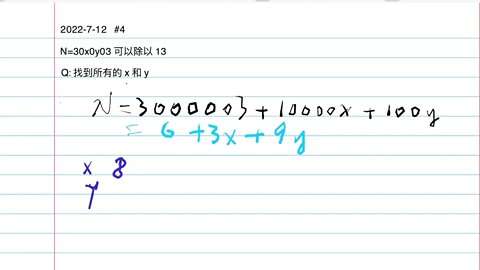 2022-7-12 #4
N=30x0y03 可以除以 13
Q: 找到所有的 x 和 y
N=3000003+10000x+100y
= 6+3x+9y
x 8
y